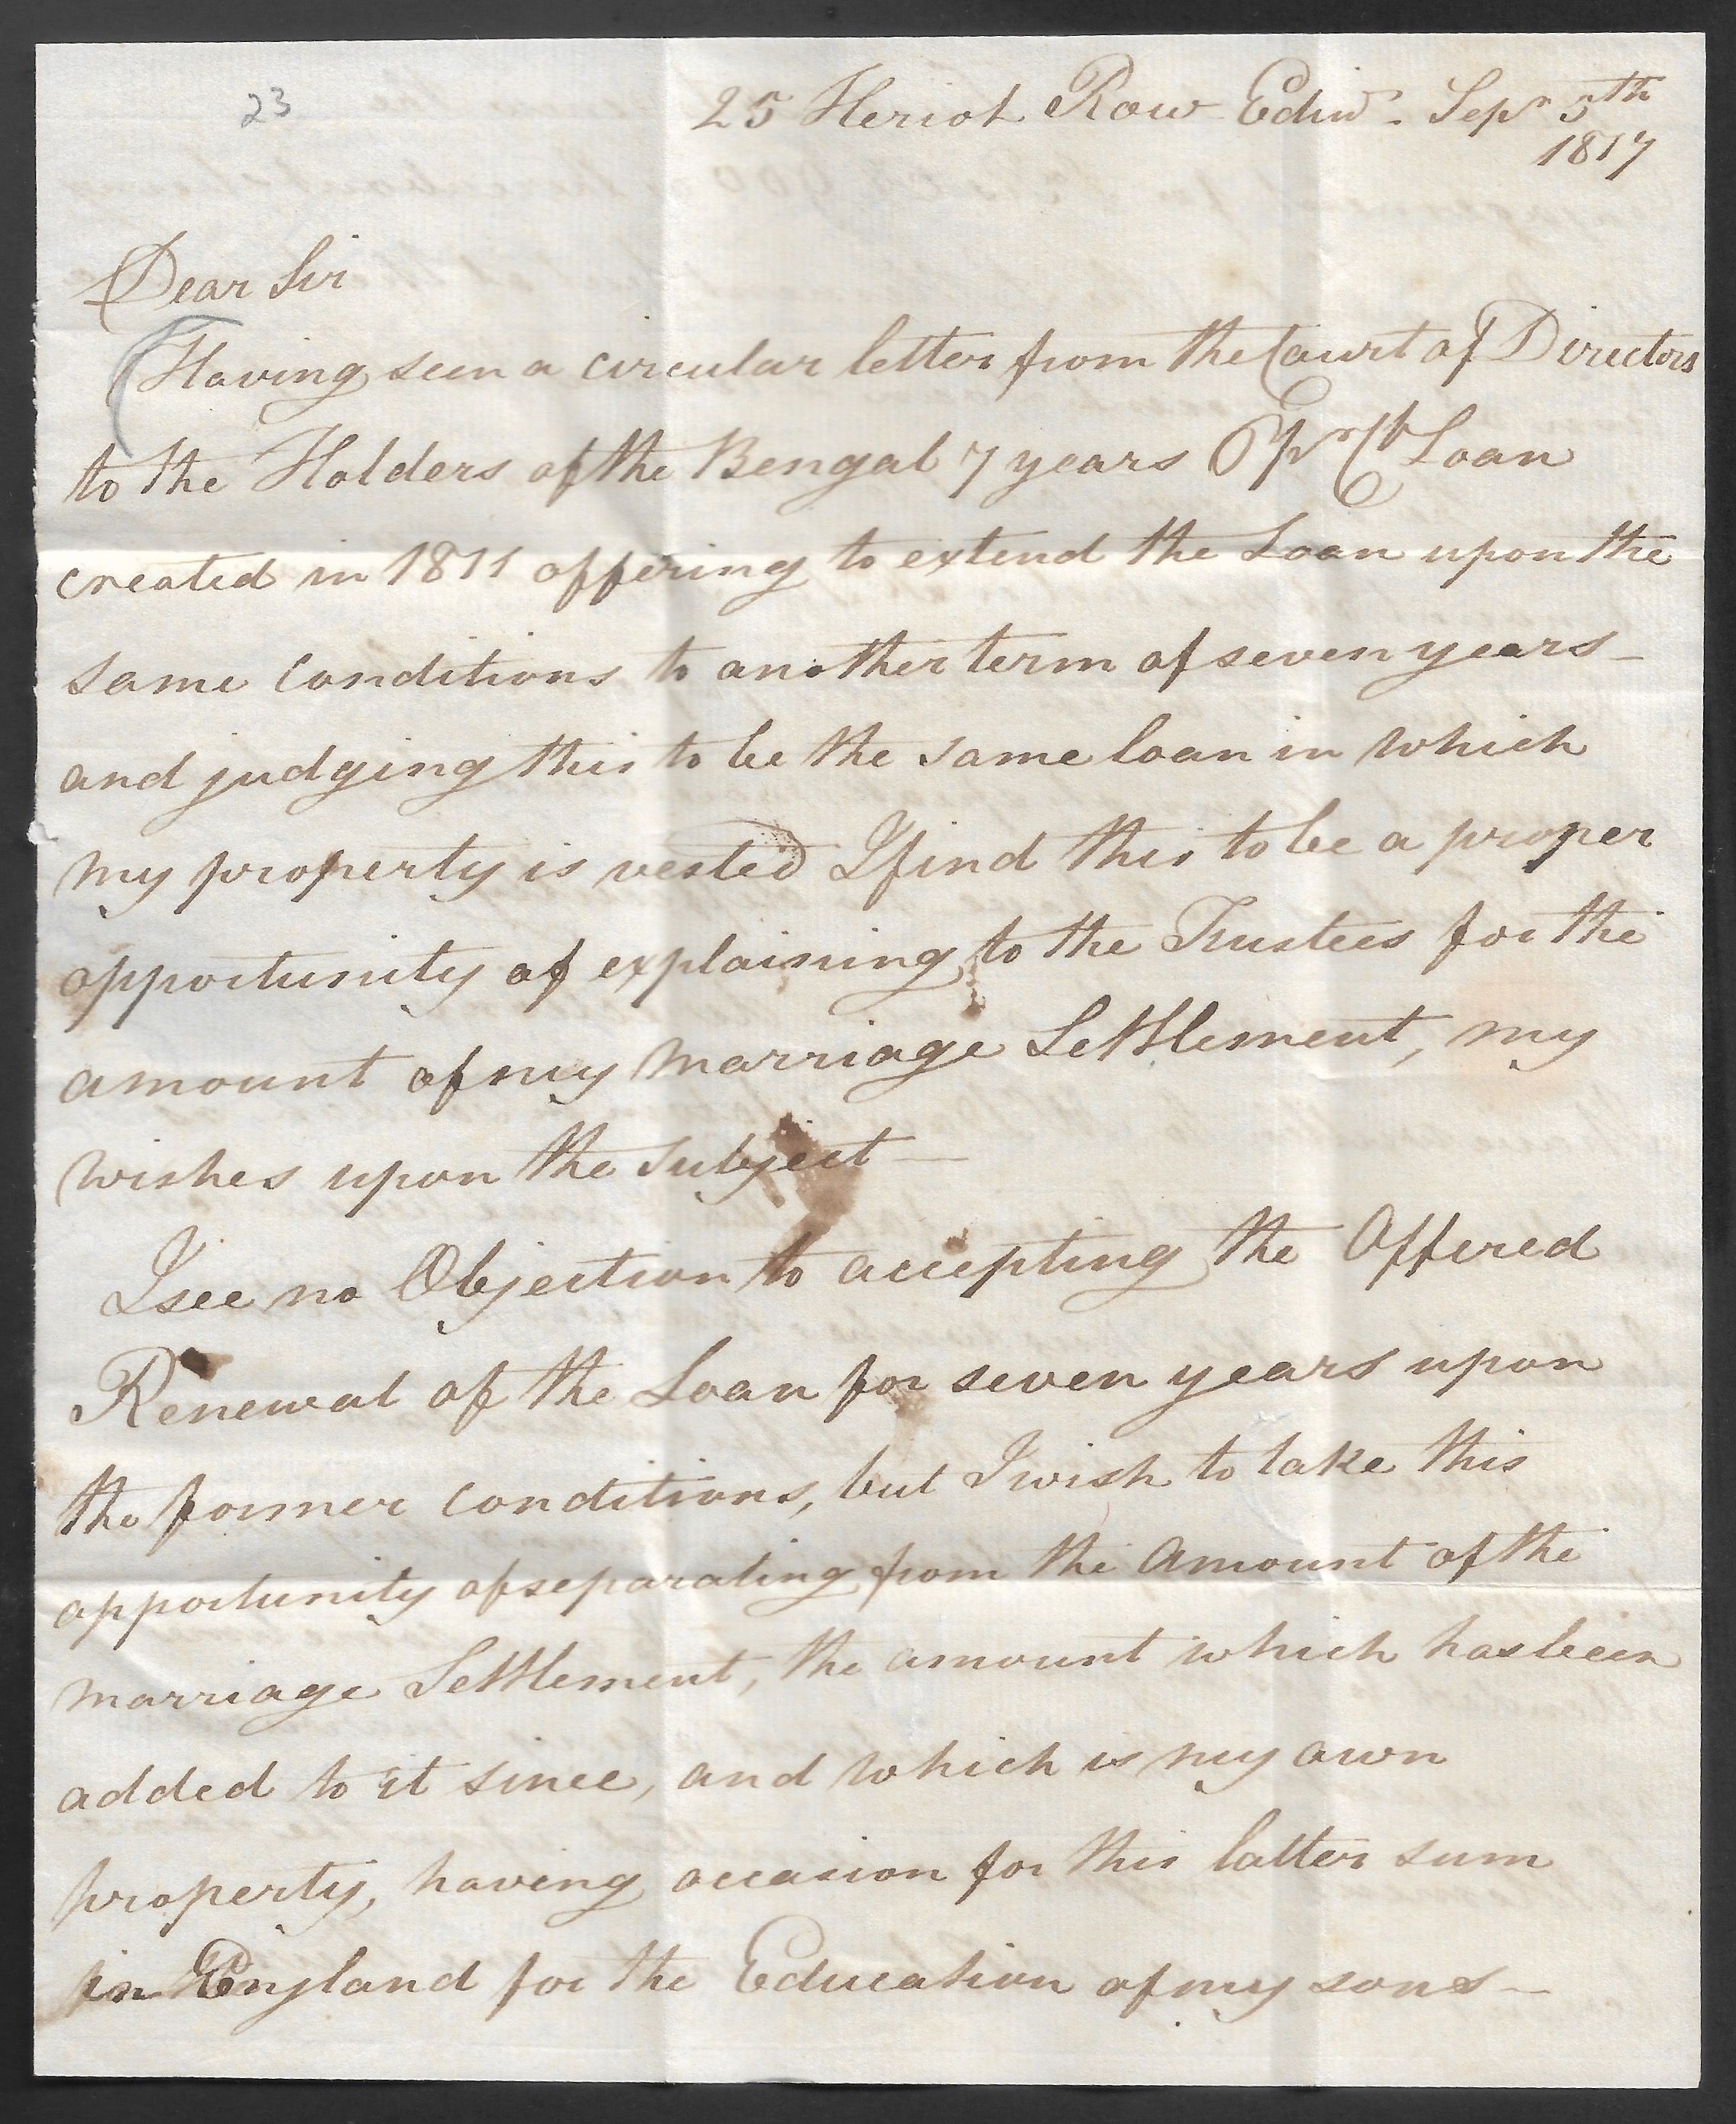 23
25 Heriot Row Edinr. Sepr 5th
1817
Dear Sir
Having seen a circular letter from the Court of Directors
to the Holders of the Bengal 7 years 6 pr Ct Loan
created in 1811 offering to extend the Loan upon the
same Conditions to another term of seven years —
and judging this to be the same loan in which
my property is vested I find this to be a proper
opportunity of explaining to the Trustees for the
amount of my Marriage Settlement, my
wishes upon the subject —
I see no Objection to accepting the Offered
Renewal of the Loan for seven years upon
the former Conditions, but I wish to take this
opportunity of separating from the Amount of the
Marriage Settlement, the amount which has been
added to it since, and which is my own
property, having occasion for this latter sum
in England for the Education of my sons —